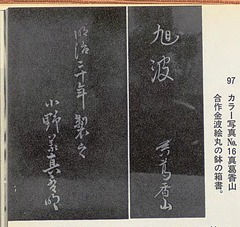 97
カラー写真No.16真葛香山
合作金波絵丸の鉢の箱書。
旭波
真葛香山
明治三十年製之
小野義真